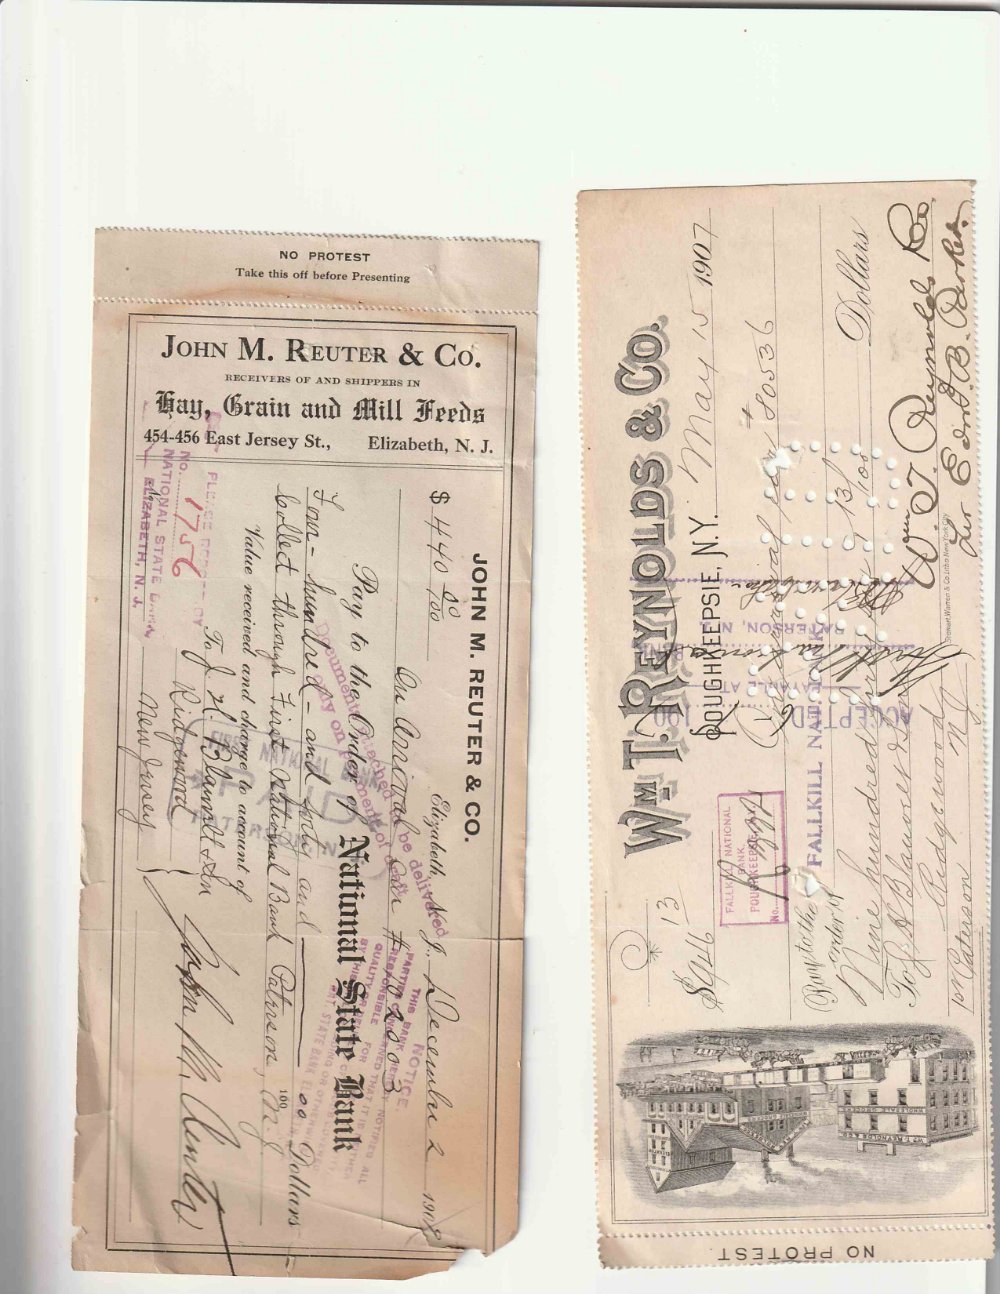 NO PROTEST
Take this off before Presenting
JOHN M. REUTER & CO.
RECEIVERS OF AND SHIPPERS IN
Hay, Grain and Mill Feeds
454-456 East Jersey St., Elizabeth, N. J.
JOHN M. REUTER & CO.
Elizabeth, N. J., December 2 190
$ 440 00/100
On arrival Car #
Pay to the Order of National State Bank
Four-hundred-and forty and 00/100 Dollars
Collect through First National Bank Paterson, N.J.
Value received and charge to account of
To J. H. Blauvelt & Son
Ridgewood
New Jersey
John M. Reuter
No. 1756
NATIONAL STATE BANK
ELIZABETH, N. J.
Documents attached to be delivered
only on payment of draft
FIRST NATIONAL BANK
PAID
PATERSON, N.J.
NOTICE
THIS BANK
WM. T. REYNOLDS & CO.
POUGHKEEPSIE, N.Y. May 15 1907
$946 13
On arrival car # 80536
Pay to the order of
FALLKILL NAT. BANK
Nine hundred 13/100 Dollars
To J H Blauvelt & Son
Ridgewood N J
Paterson N J
Wm T. Reynolds & Co.
Per Edm. B. Parker
Stewart, Warren & Co. Litho New York City
FALLKILL NATIONAL
BANK
POUGHKEEPSIE
No.
ACCEPTED 190
PAYABLE AT
BANK
PATERSON, N. J.
WM T. REYNOLDS & CO.
WHOLESALE GROCERS
NO PROTEST.